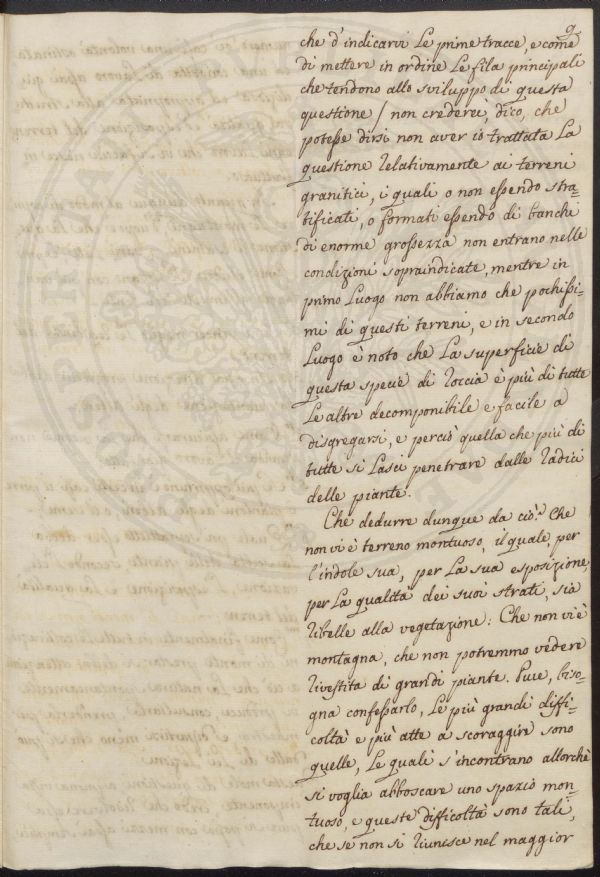 9.
che d'indicarvi le prime tracce, e come
di mettere in ordine le fila principali
che tendono allo sviluppo di questa
questione / non crederei, dico, che
potesse dirsi non aver io trattata la
questione relativamente ai terreni
granitici, i quali o non essendo stra-
tificati, o formati essendo di banchi
di enorme grossezza non entrano nelle
condizioni sopraindicate, mentre in
primo luogo non abbiamo che pochissi-
mi di questi terreni, e in secondo
luogo è noto che la superficie di
questa specie di roccia è più di tutte
le altre decomponibile e facile a
disgregarsi, e perciò quella che più di
tutte si lasci penetrare dalle radici
delle piante.
Che dedurre dunque da ciò? Che
non vi è terreno montuoso, il quale, per
l'indole sua, per la sua esposizione,
per la qualità dei suoi strati, sia
ribelle alla vegetazione: Che non vi è
montagna, che non potremmo vedere
rivestita di grandi piante. Pure, biso-
gna confessarlo, le più grandi diffi-
coltà e più atte a scoraggire sono
quelle, le quali s'incontrano allorchè
si voglia abboscare uno spazio mon-
tuoso, e queste difficoltà sono tali,
che se non si riunisce nel maggior